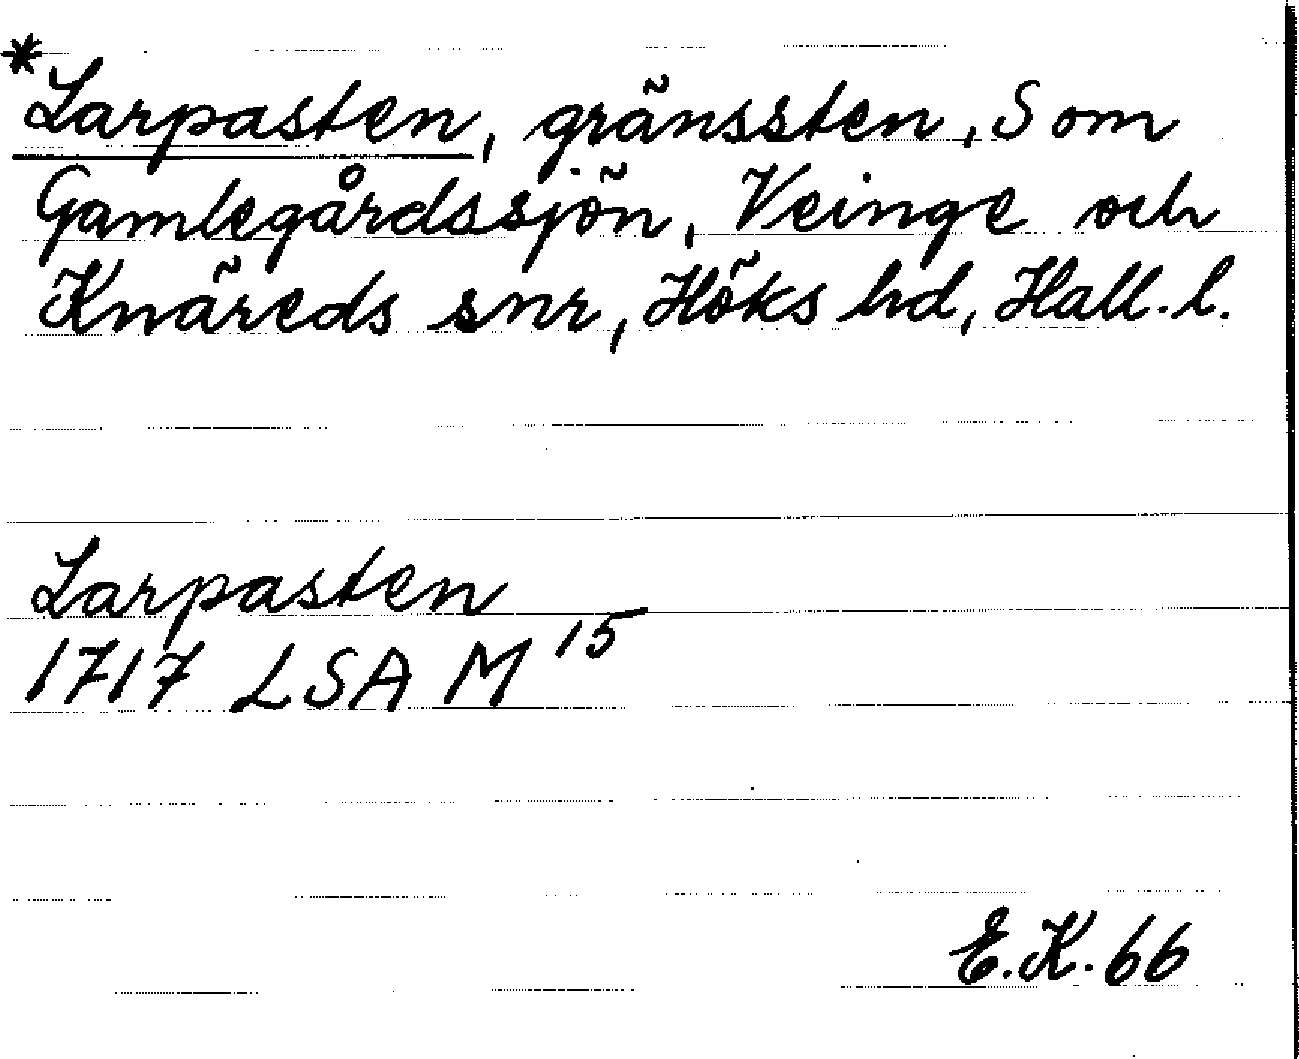 *Larpasten, gränssten, S om
Gamlegårdssjön, Veinge och
Knäreds snr, Höks hd, Hall. l.
Larpasten
1717 LSA M 15
E.K. 66